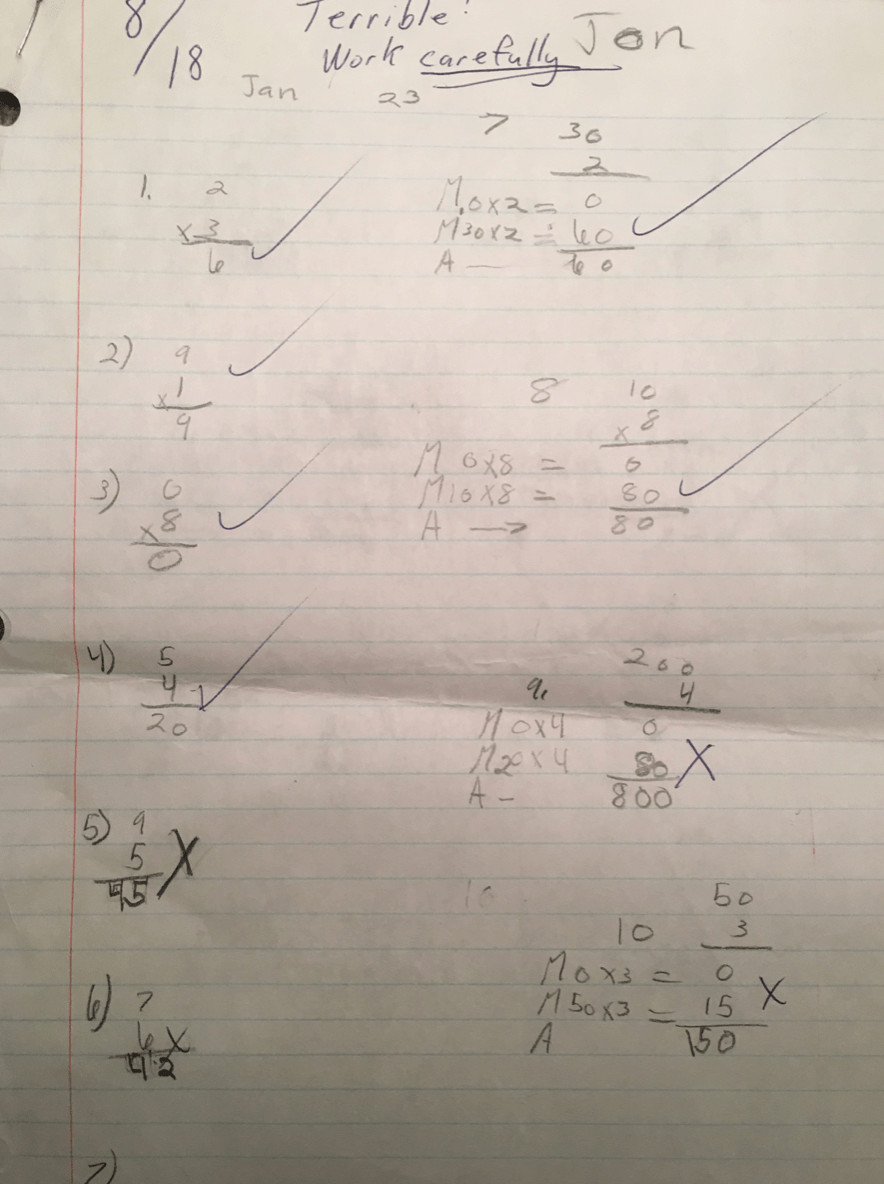 8/18 Terrible!
Work carefully Jon
Jan 23
1. 2
x 3
6
2) 9
x 1
9
3) 0
x 8
0
4) 5
4
20
5) 9
5
45
6) 7
6
42
7)
7 30
2
M 0x2 = 0
M 30x2 = 60
A — 60
8 10
x 8
M 0x8 = 0
M 10x8 = 80
A → 80
9. 200
4
M 0x4 0
M 20x4 80
A - 800
10
10 50
3
M 0x3 = 0
M 50x3 = 15
A 150